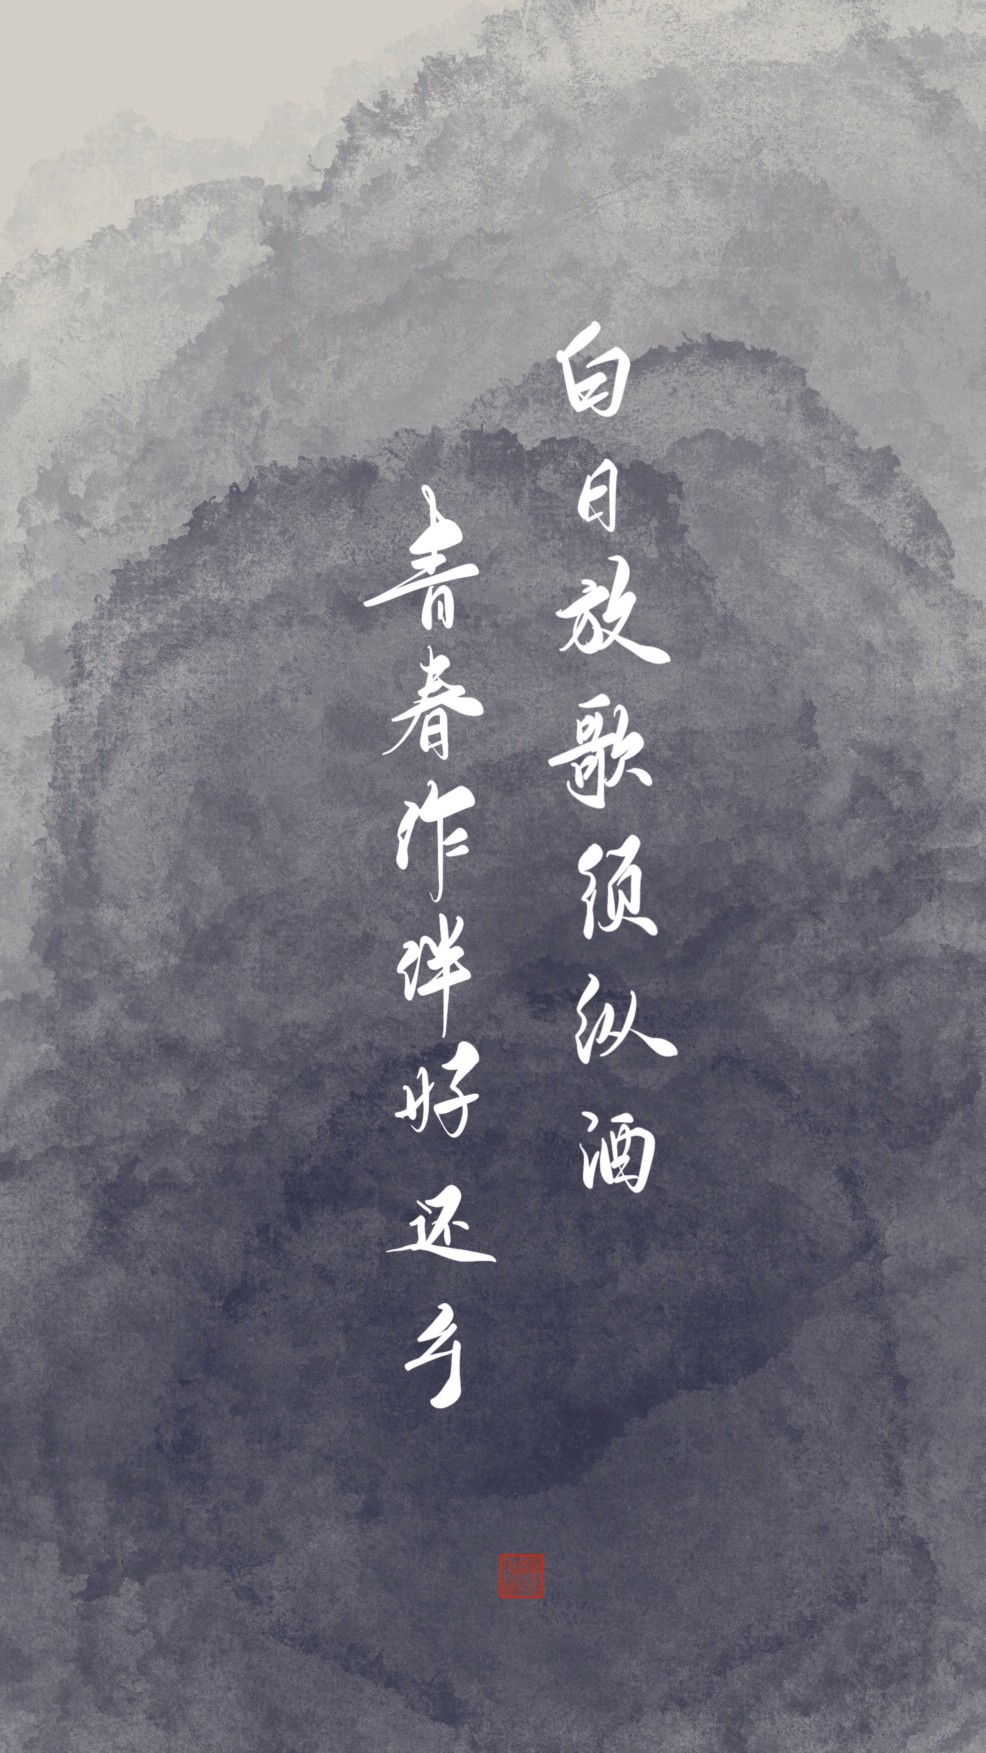 白日放歌须纵酒
青春作伴好还乡